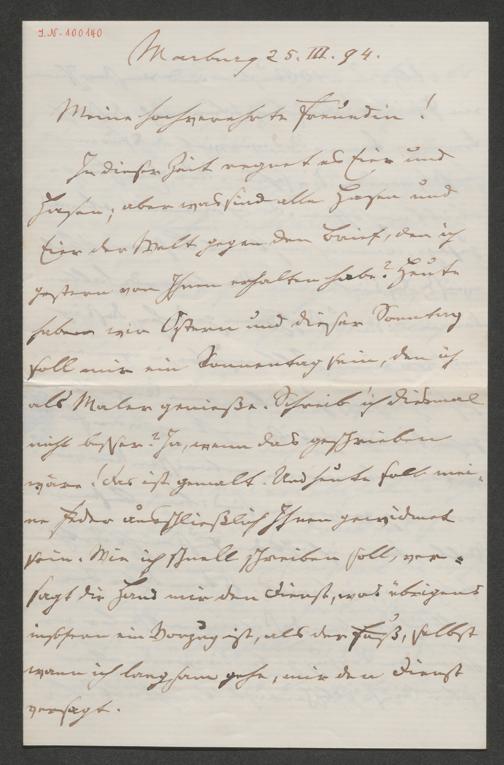 J.N. 100140
Marburg 25. III. 94.
Meine hochverehrte Freundin!
In dieser Zeit regnet es Eier und
Hasen; aber was sind alle Hasen und
Eier der Welt gegen den Brief, den ich
gestern von Ihnen erhalten habe? Heute
haben wir Ostern und dieser Sonntag
soll mir ein Sonnentag sein, den ich
als Maler genieße. Schreib' ich diesmal
nicht besser? Ja, wenn das geschrieben
wäre! das ist gemalt. Und heute soll mei-
ne Feder ausschließlich Ihnen gewidmet
sein. Wie ich schnell schreiben soll, ver-
sagt die Hand mir den Dienst, was übrigens
insofern ein Vorzug ist, als der Fuß, selbst
wann ich langsam gehe, mir den Dienst
versagt.